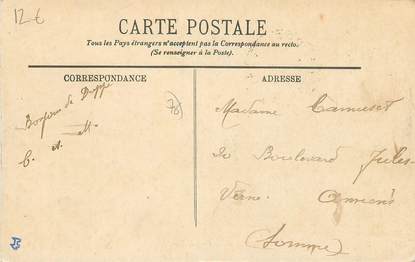 12€
CARTE POSTALE
Tous les Pays étrangers n'acceptent pas la Correspondance au recto.
(Se renseigner à la Poste).
CORRESPONDANCE
Bonjour de Dieppe
C. A. M.
ADRESSE
Madame Camuset
20 Boulevard Jules-
Verne. Amiens
(Somme)